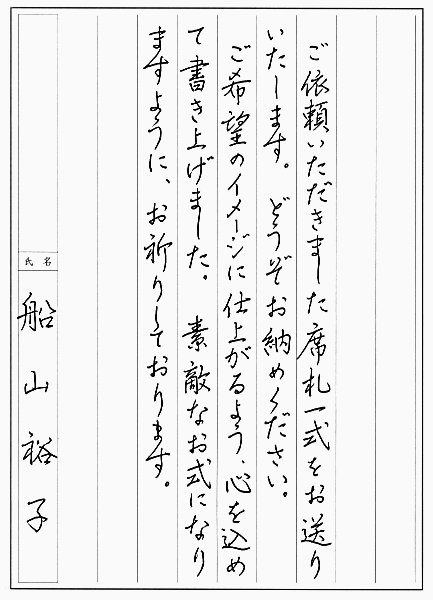 ご依頼いただきました席札一式をお送り
いたします。どうぞお納めください。
ご希望のイメージに仕上がるよう、心を込め
て書き上げました。素敵なお式になり
ますように、お祈りしております。
氏名
船山裕子